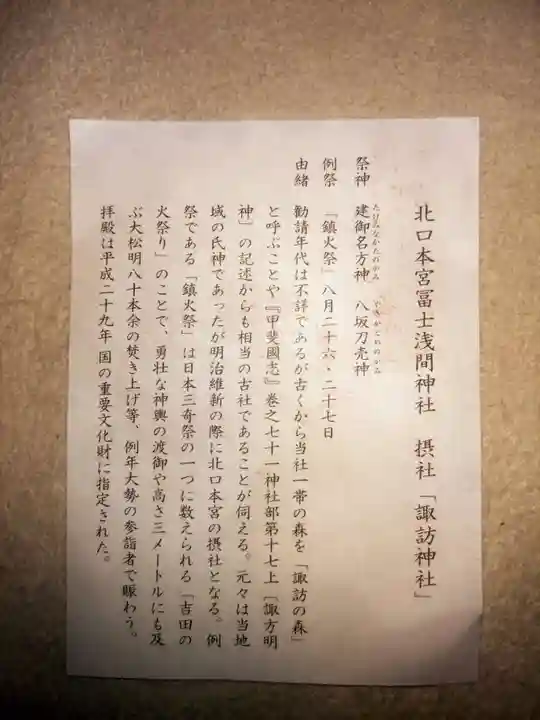 北口本宮冨士浅間神社　摂社「諏訪神社」
祭神　建御名方神　八坂刀売神
例祭　「鎮火祭」八月二十六・二十七日
由緒　勧請年代は不詳であるが古くから当社一帯の森を「諏訪の森」
と呼ぶことや『甲斐國志』巻之七十一神社部第十七上「諏方明
神」の記述からも相当の古社であることが伺える。元々は当地
域の氏神であったが明治維新の際に北口本宮の摂社となる。例
祭である「鎮火祭」は日本三奇祭の一つに数えられる「吉田の
火祭り」のことで、勇壮な神輿の渡御や高さ三メートルにも及
ぶ大松明八十本余の焚き上げ等、例年大勢の参詣者で賑わう。
拝殿は平成二十九年 国の重要文化財に指定された。